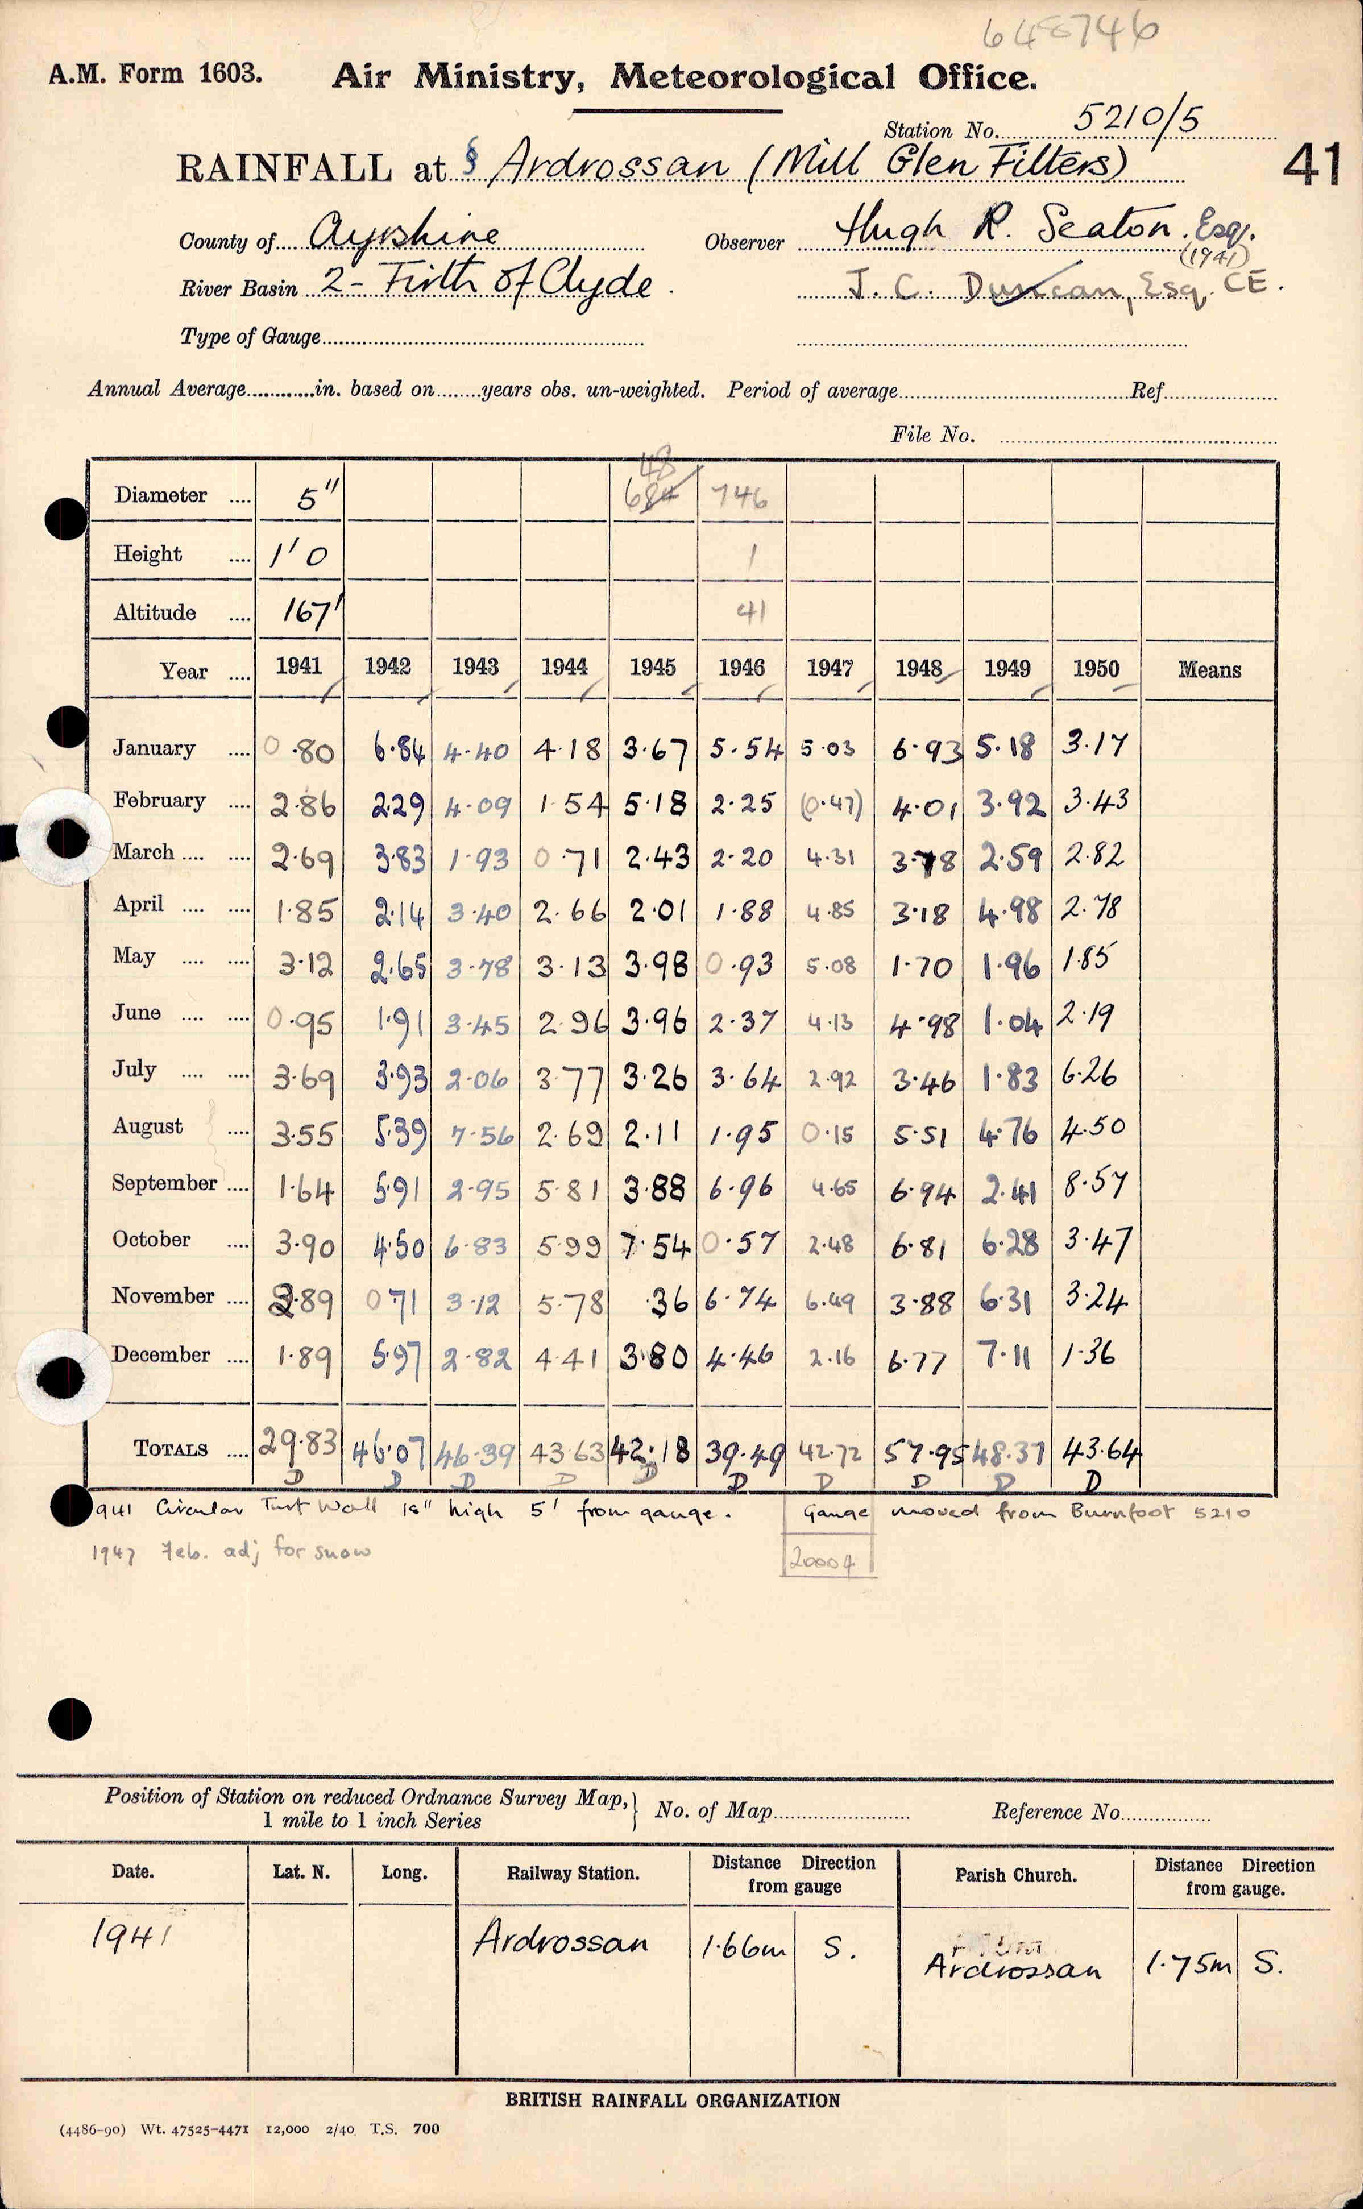 648746
A.M. Form 1603. Air Ministry, Meteorological Office.
Station No. 5210/5
RAINFALL at § Ardrossan (Mill Glen Filters) 41
County of Ayrshire Observer Hugh R. Seaton. Esq.
(1941)
River Basin 2 - Firth of Clyde J. C. Duncan, Esq. CE.
Type of Gauge
Annual Average in. based on years obs. un-weighted. Period of average Ref
File No.
48
Diameter .... 5" 684 746
Height .... 1' 0 1
Altitude .... 167' 41
Year .... 1941 1942 1943 1944 1945 1946 1947 1948 1949 1950 Means
January .... 0.80 6.84 4.40 4.18 3.67 5.54 5.03 6.93 5.18 3.17
February .... 2.86 2.29 4.09 1.54 5.18 2.25 (0.47) 4.01 3.92 3.43
March .... .... 2.69 3.83 1.93 0.71 2.43 2.20 4.31 3.78 2.59 2.82
April .... .... 1.85 2.14 3.40 2.66 2.01 1.88 4.85 3.18 4.98 2.78
May .... .... 3.12 2.65 3.78 3.13 3.98 0.93 5.08 1.70 1.96 1.85
June .... .... 0.95 1.91 3.45 2.96 3.96 2.37 4.13 4.98 1.04 2.19
July .... .... 3.69 3.93 2.06 3.77 3.26 3.64 2.92 3.46 1.83 6.26
August .... 3.55 5.39 7.56 2.69 2.11 1.95 0.15 5.51 4.76 4.50
September .... 1.64 5.91 2.95 5.81 3.88 6.96 4.65 6.94 2.41 8.57
October .... 3.90 4.50 6.83 5.99 7.54 0.57 2.48 6.81 6.28 3.47
November .... 2.89 0.71 3.12 5.78 .36 6.74 6.49 3.88 6.31 3.24
December .... 1.89 5.97 2.82 4.41 3.80 4.46 2.16 6.77 7.11 1.36
TOTALS .... 29.83 46.07 46.39 43.63 42.18 39.49 42.72 57.95 48.37 43.64
D D D D D D D D D D
941 Circular Turf Wall 15" high 5' from gauge. Gauge moved from Burnfoot 5210
1947 Feb. adj for snow 20009
Position of Station on reduced Ordnance Survey Map, 1 mile to 1 inch Series No. of Map Reference No.
Date. Lat. N. Long. Railway Station. Distance Direction from gauge Parish Church. Distance Direction from gauge.
1941 Ardrossan 1.66m S. Ardrossan 1.75m S.
BRITISH RAINFALL ORGANIZATION
(4486-90) Wt. 47525-4471 12,000 2/40 T.S. 700